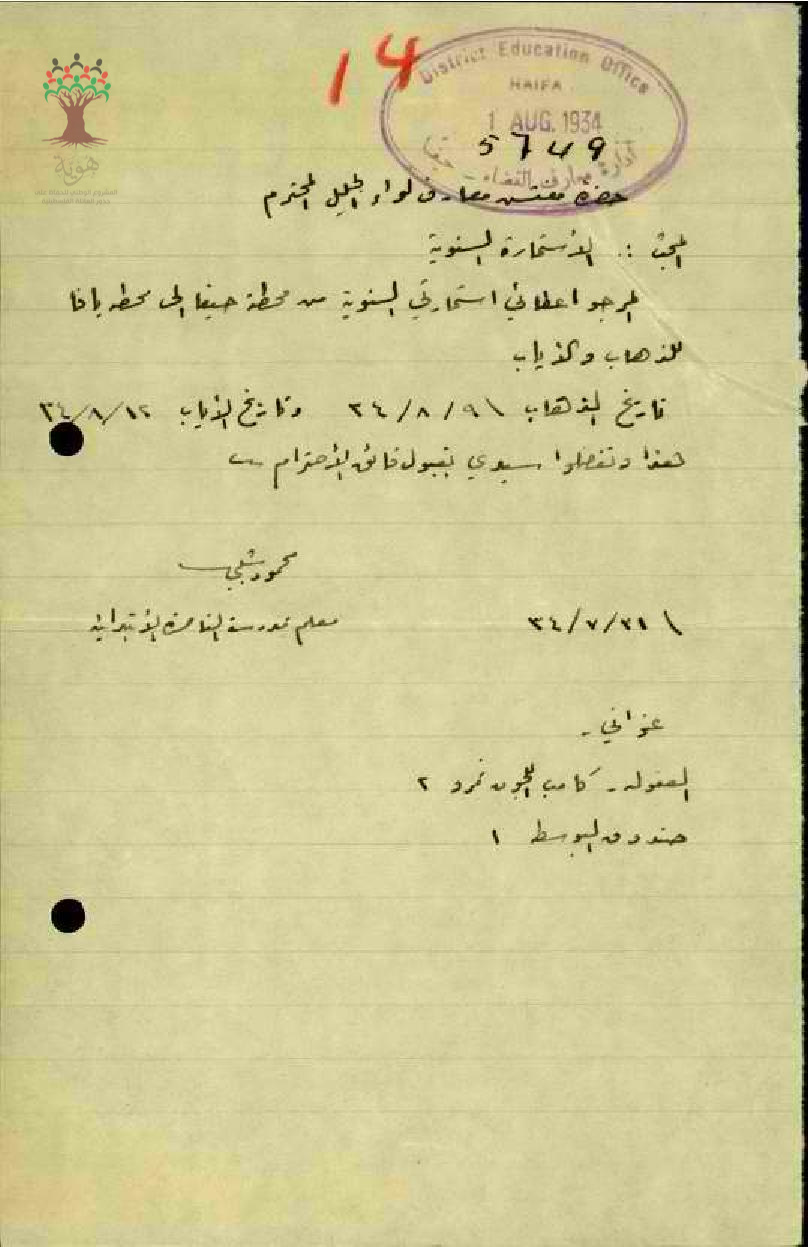 14
District Education Office
HAIFA
1 AUG. 1934
5649
إدارة معارف القضاء - حيفا
هوية
حضرة مفتش معارف لواء الجليل المحترم
المبحث :. الأستمارة السنوية
المرجو اعطائي استمارتي السنوية من محطة حيفا الى محطه يافا
للذهاب والأياب
تاريخ الذهاب ٩ / ٨ / ٣٤ وتاريخ الأياب ١٢ / ٨ / ٣٤
هذا وتفضلوا سيدي بقبول فائق الأحترام
محمود
٣١ / ٧ / ٣٤
معلم بمدرسة الناصرة الأبتدائية
عنواني -
العفوله - كامب اللجون نمرو ٢
صندوق البوسطه ١